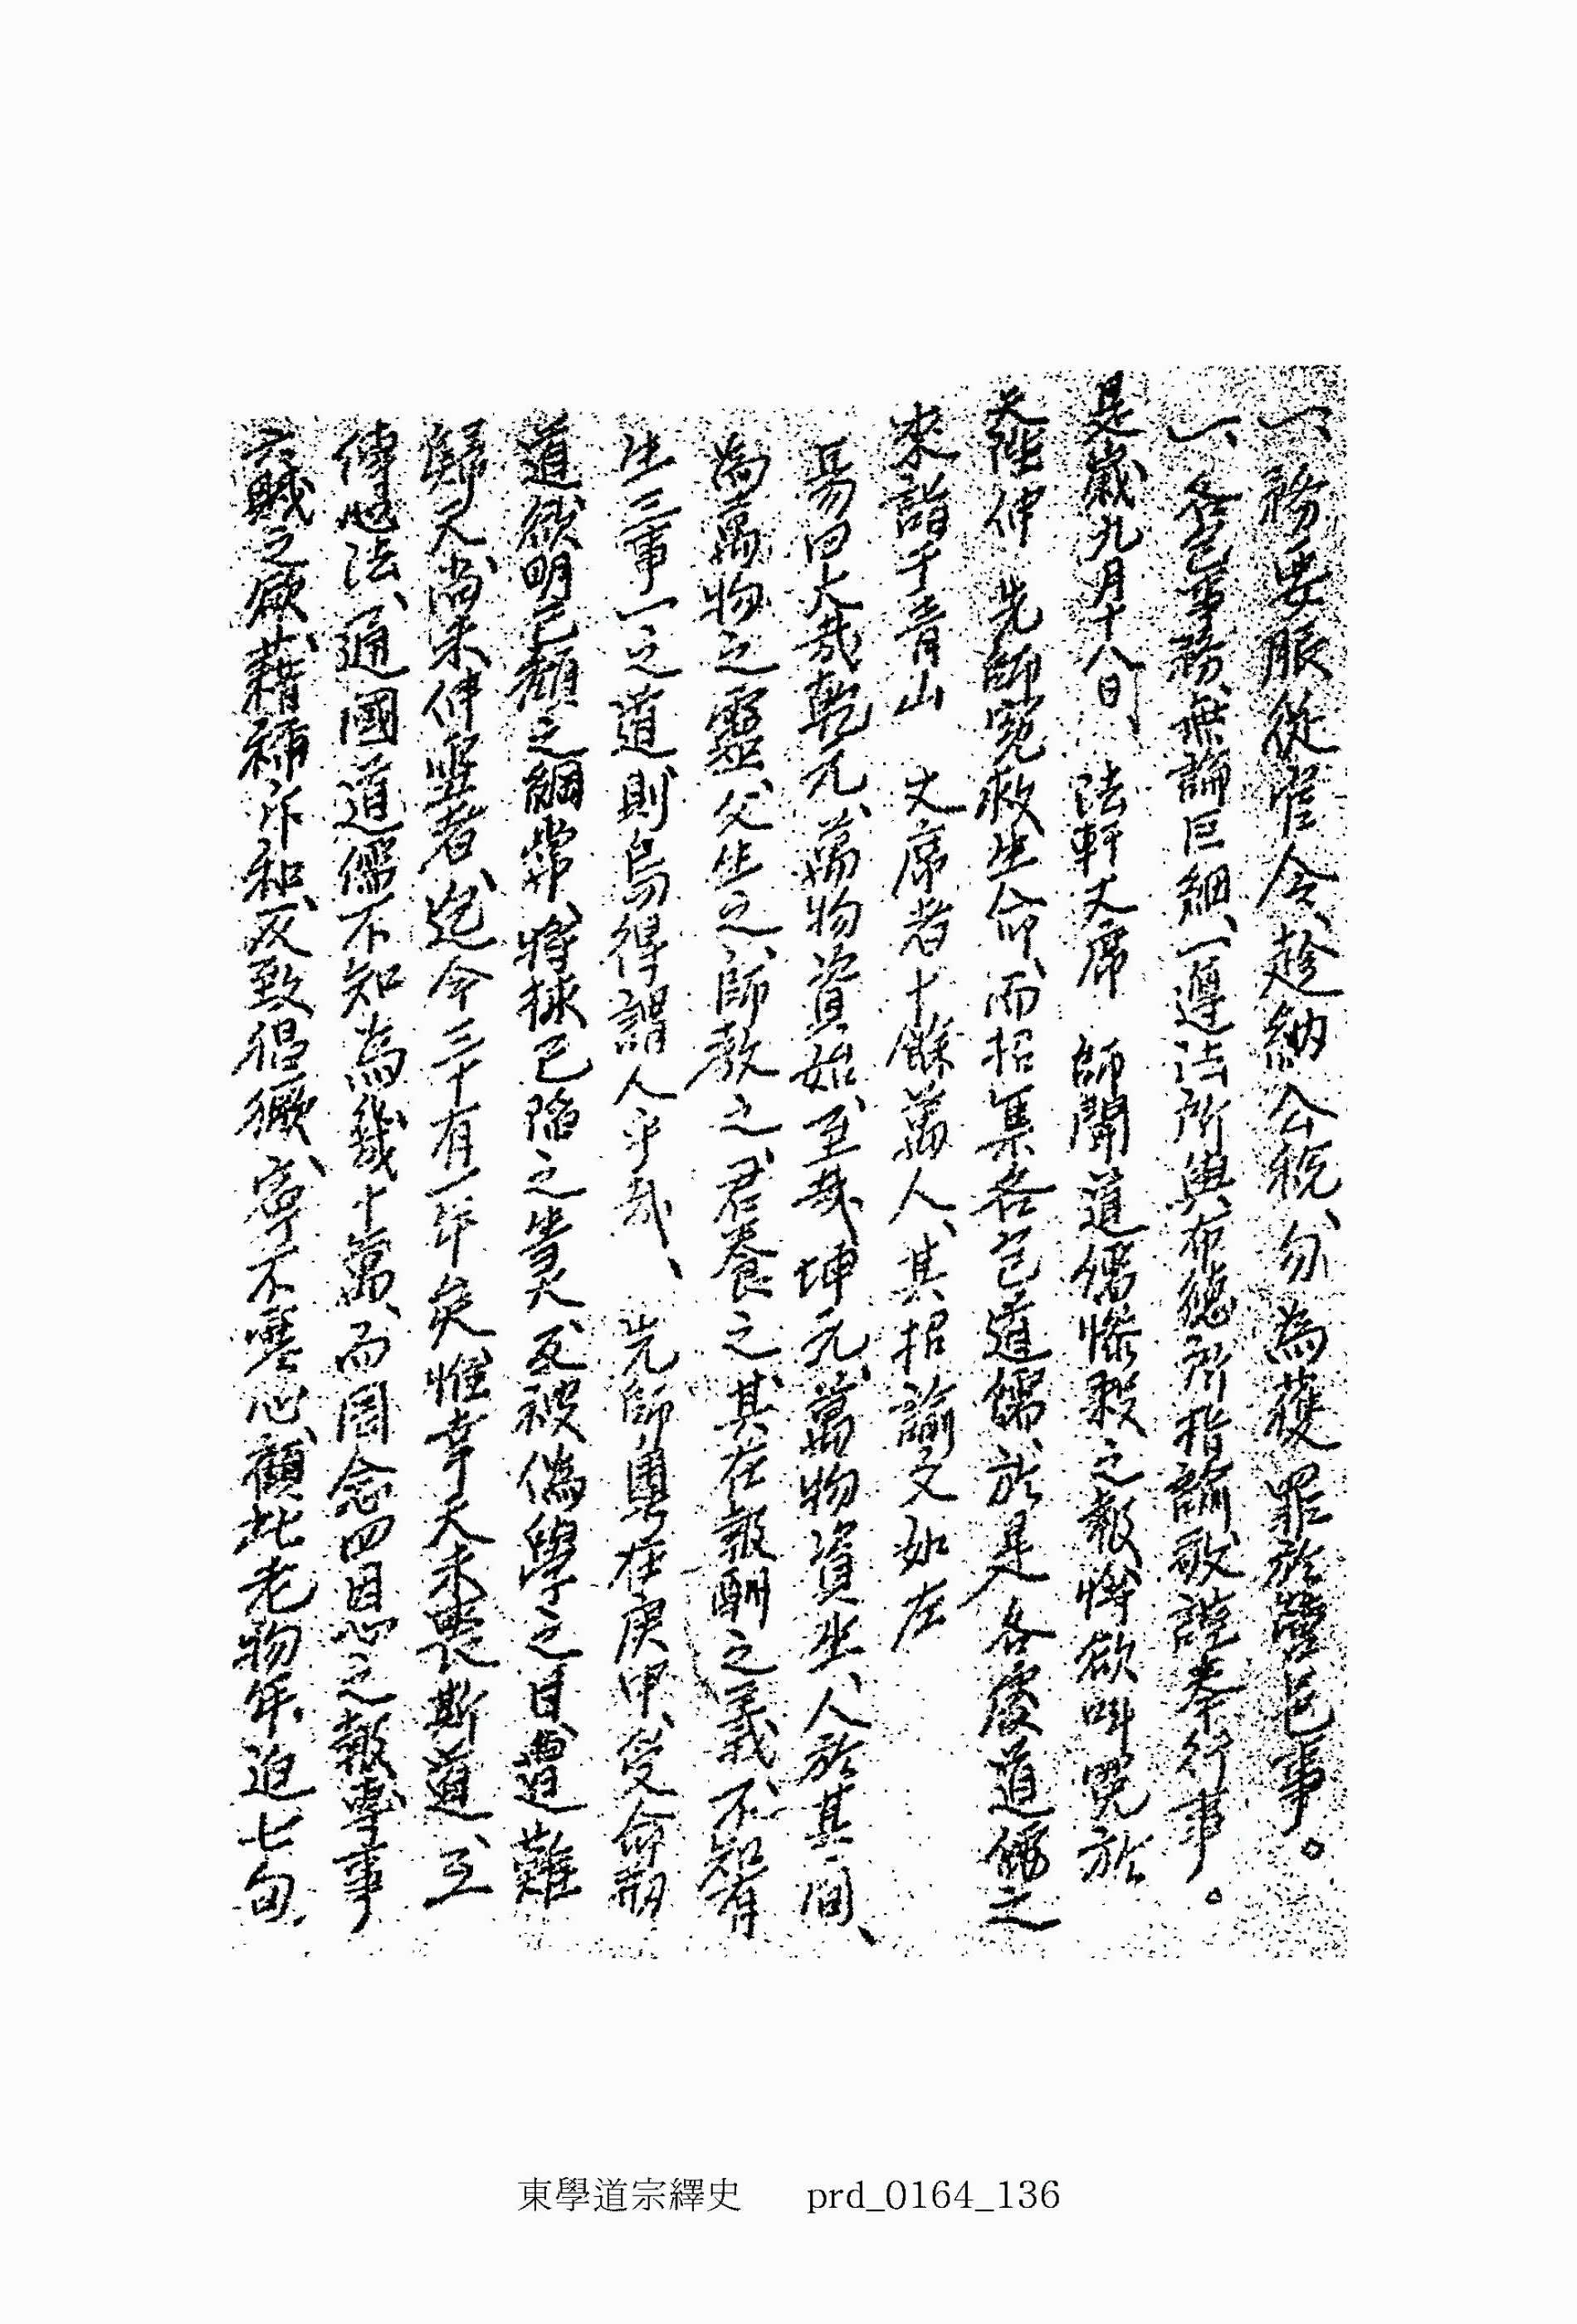 一、務要服從官令、趁納公税、勿爲獲罪於營邑事。
一、各包事務、無論巨細、一遵法所與布德所指諭、敬謹奉行事。
是歲九月十八日、法軒丈席 師聞道儒慘殺之報、將欲叫冤於
天陛、伸 先師冤、救生命、而招集各包道儒、於是、各處道儒之
來詣于靑山 丈席者十餘萬人、其招諭文如左
易曰大哉乾元、萬物資始、至哉坤元、萬物資生、人於其間、
爲萬物之靈、父生之、師敎之、君養之、其在報酬之義、不知有
生三事一之道、則烏得謂人乎哉、 先師粤在庚申、受命刱
道、欲明已頹之綱常、將拯已陷之生靈、反被僞學之目、遭難
歸天、尙未伸冤者、迄今三十有一年矣、惟幸天未喪斯道、互
傳心法、通國道儒不知爲幾十萬、而罔念四恩之報、專事
六賊之慾、藉補斥和、反致猖獗、寧不寒心、顧此老物年迫七旬、